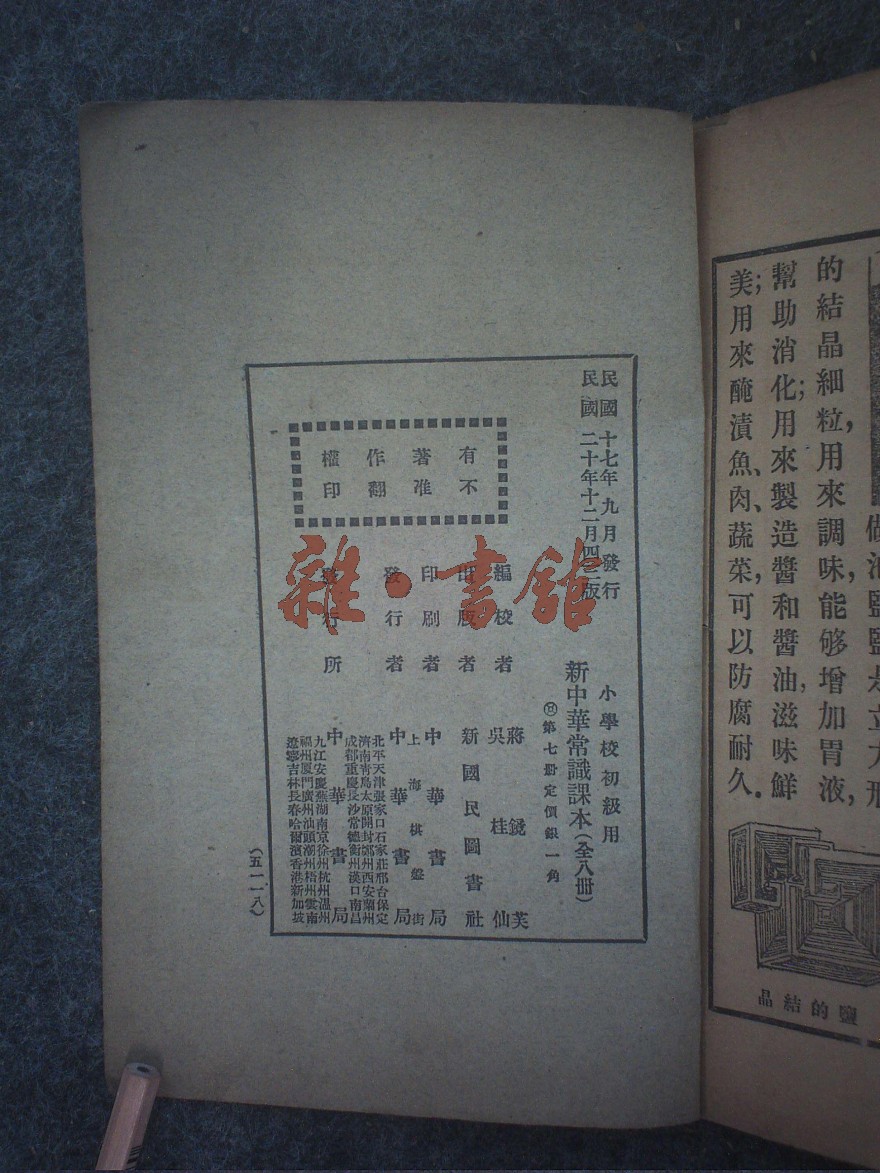 的結晶細粒，用來調味，能够增加胃液，
幫助消化；用來製造醬和醬油，滋味鮮
美；用來醃漬魚、肉、蔬菜，可以防腐耐久。
鹽的結晶
民國十七年九月發行
民國二十年十二月四三版
小學校初級用
新中華常識課本（全八册）
第七册定價銀一角
有不
著准
作翻
權印
編校者 蔣鏡芙
吳桂仙
出版者 新國民圖書社
印刷者 中華書局
上海棋盤街
發行者 中華書局
北平天津張家口石家莊邢台保定
濟南青島太原開封鄭州西安蘭州
成都重慶長沙常德衡州漢口南昌
發行所 中華書局
九江安慶蕪湖南京徐州杭州溫州
福州厦門廣州汕頭潮州梧州雲南
遼寧吉林長春哈爾濱香港新加坡
（五一一八）
雜·書館